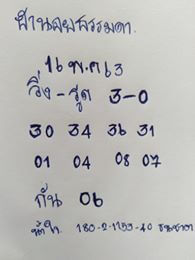 บ้านสวยธรรมดา
16 พ.ค 63
วิ่ง - รูด 3-0
30 34 36 31
01 04 08 07
กัน 06
180-2-1153-40 ธนชาต